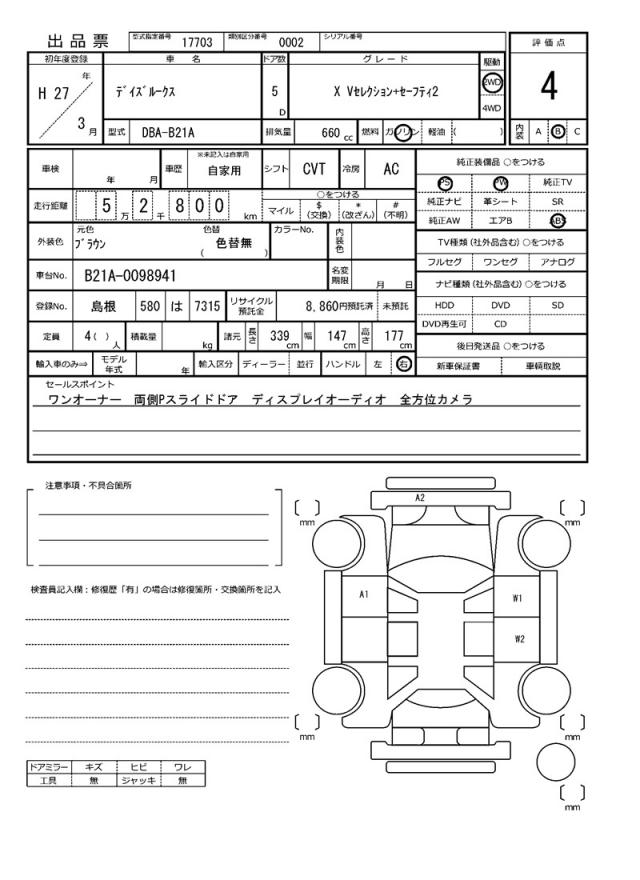 出品票 型式指定番号 17703 類別区分番号 0002 シリアル番号
初年度登録 車 名 ドア数 グレード 駆動 評価点
H 27 年 3 月 ディズルークス 5 D X Vセレクション+セーフティ2 2WD 4WD 4
型式 DBA-B21A 排気量 660 cc 燃料 ガソリン 軽油 ( ) 内装 A B C
車検 年 月 車歴 ※未記入は自家用 自家用 シフト CVT 冷房 AC 純正装備品 ○をつける
PS PW 純正TV
走行距離 5 万 2 千 8 0 0 km ○をつける 純正ナビ 革シート SR
マイル $ (交換) * (改ざん) # (不明) 純正AW エアB ABS
外装色 元色 ブラウン 色替 色替無 ( ) カラーNo. 内装色 TV種類 (社外品含む) ○をつける
フルセグ ワンセグ アナログ
車台No. B21A-0098941 名変期限 月 日 ナビ種類 (社外品含む) ○をつける
登録No. 島根 580 は 7315 リサイクル預託金 8,860円預託済 未預託 HDD DVD SD
DVD再生可 CD
定員 4 ( ) 人 積載量 kg 諸元 長さ 339 cm 幅 147 cm 高さ 177 cm 後日発送品 ○をつける
輸入車のみ⇒ モデル年式 年 輸入区分 ディーラー 並行 ハンドル 左 右 新車保証書 車輌取説
セールスポイント
ワンオーナー 両側Pスライドドア ディスプレイオーディオ 全方位カメラ
注意事項・不具合箇所
検査員記入欄：修復歴「有」の場合は修復箇所・交換箇所を記入
ドアミラー キズ ヒビ ワレ
工具 無 ジャッキ 無
A2
mm mm
A1 W1
W2
mm mm
mm